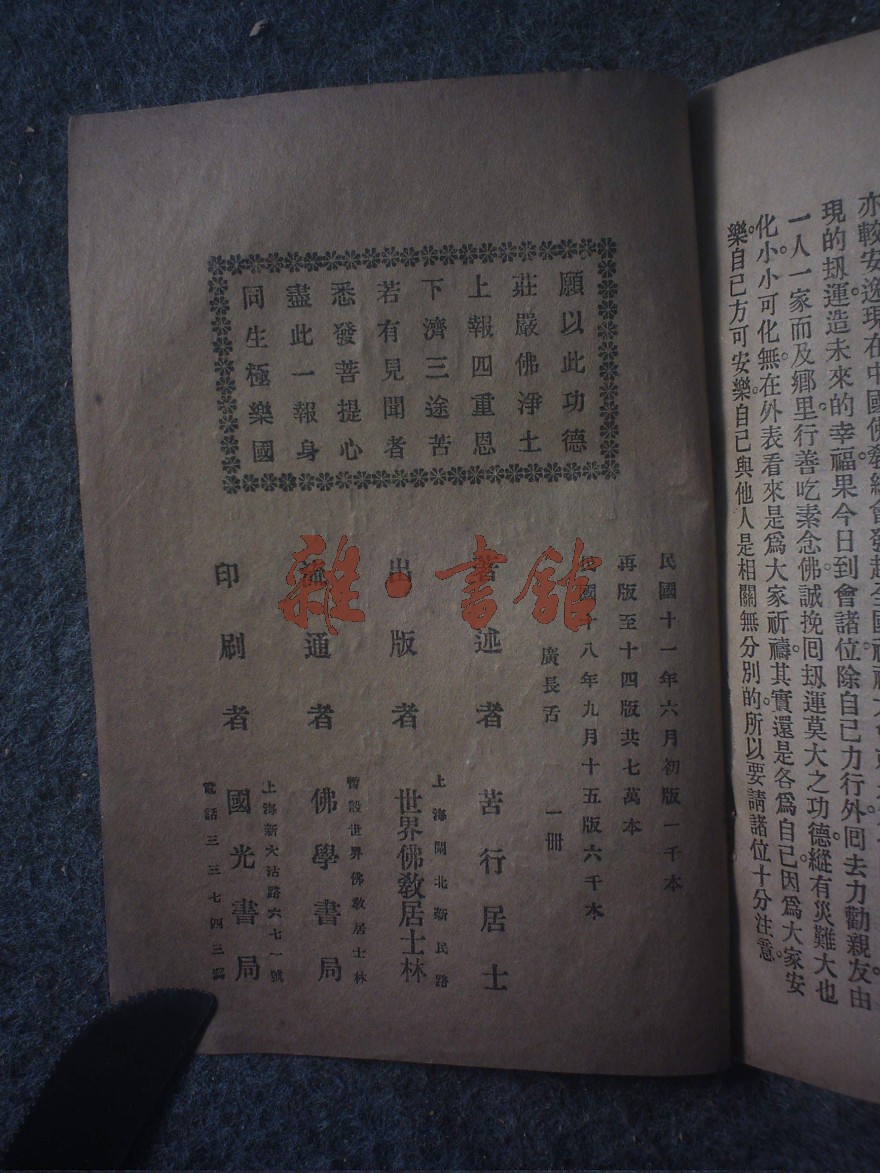 亦較安逸現在中國佛教總會發起全國
現的刼運造未來的幸福果今日到會諸位除自己力行外回去力勸親友由
一人一家而及鄉里行善吃素念佛誠挽回刼運莫大之功德縱有災難大也
化小小可化無在外表看來是爲大家祈禱其實還是各爲自己因爲大家安
樂自己方可安樂自己與他人是相關無分別的所以要請諸位十分注意
願以此功德
莊嚴佛淨土
上報四重恩
下濟三途苦
若有見聞者
悉發菩提心
盡此一報身
同生極樂國
民國十一年六月初版一千本
再版至十四版共七萬本
民國十八年九月十五版六千本
廣長舌 一冊
著述者 苦行居士
上海閘北新民路
出版者 世界佛教居士林
暫設世界佛教居士林
流通者 佛學書局
上海新大沽路六七一號
印刷者 國光書局
電話三三七四三號
雜·書館